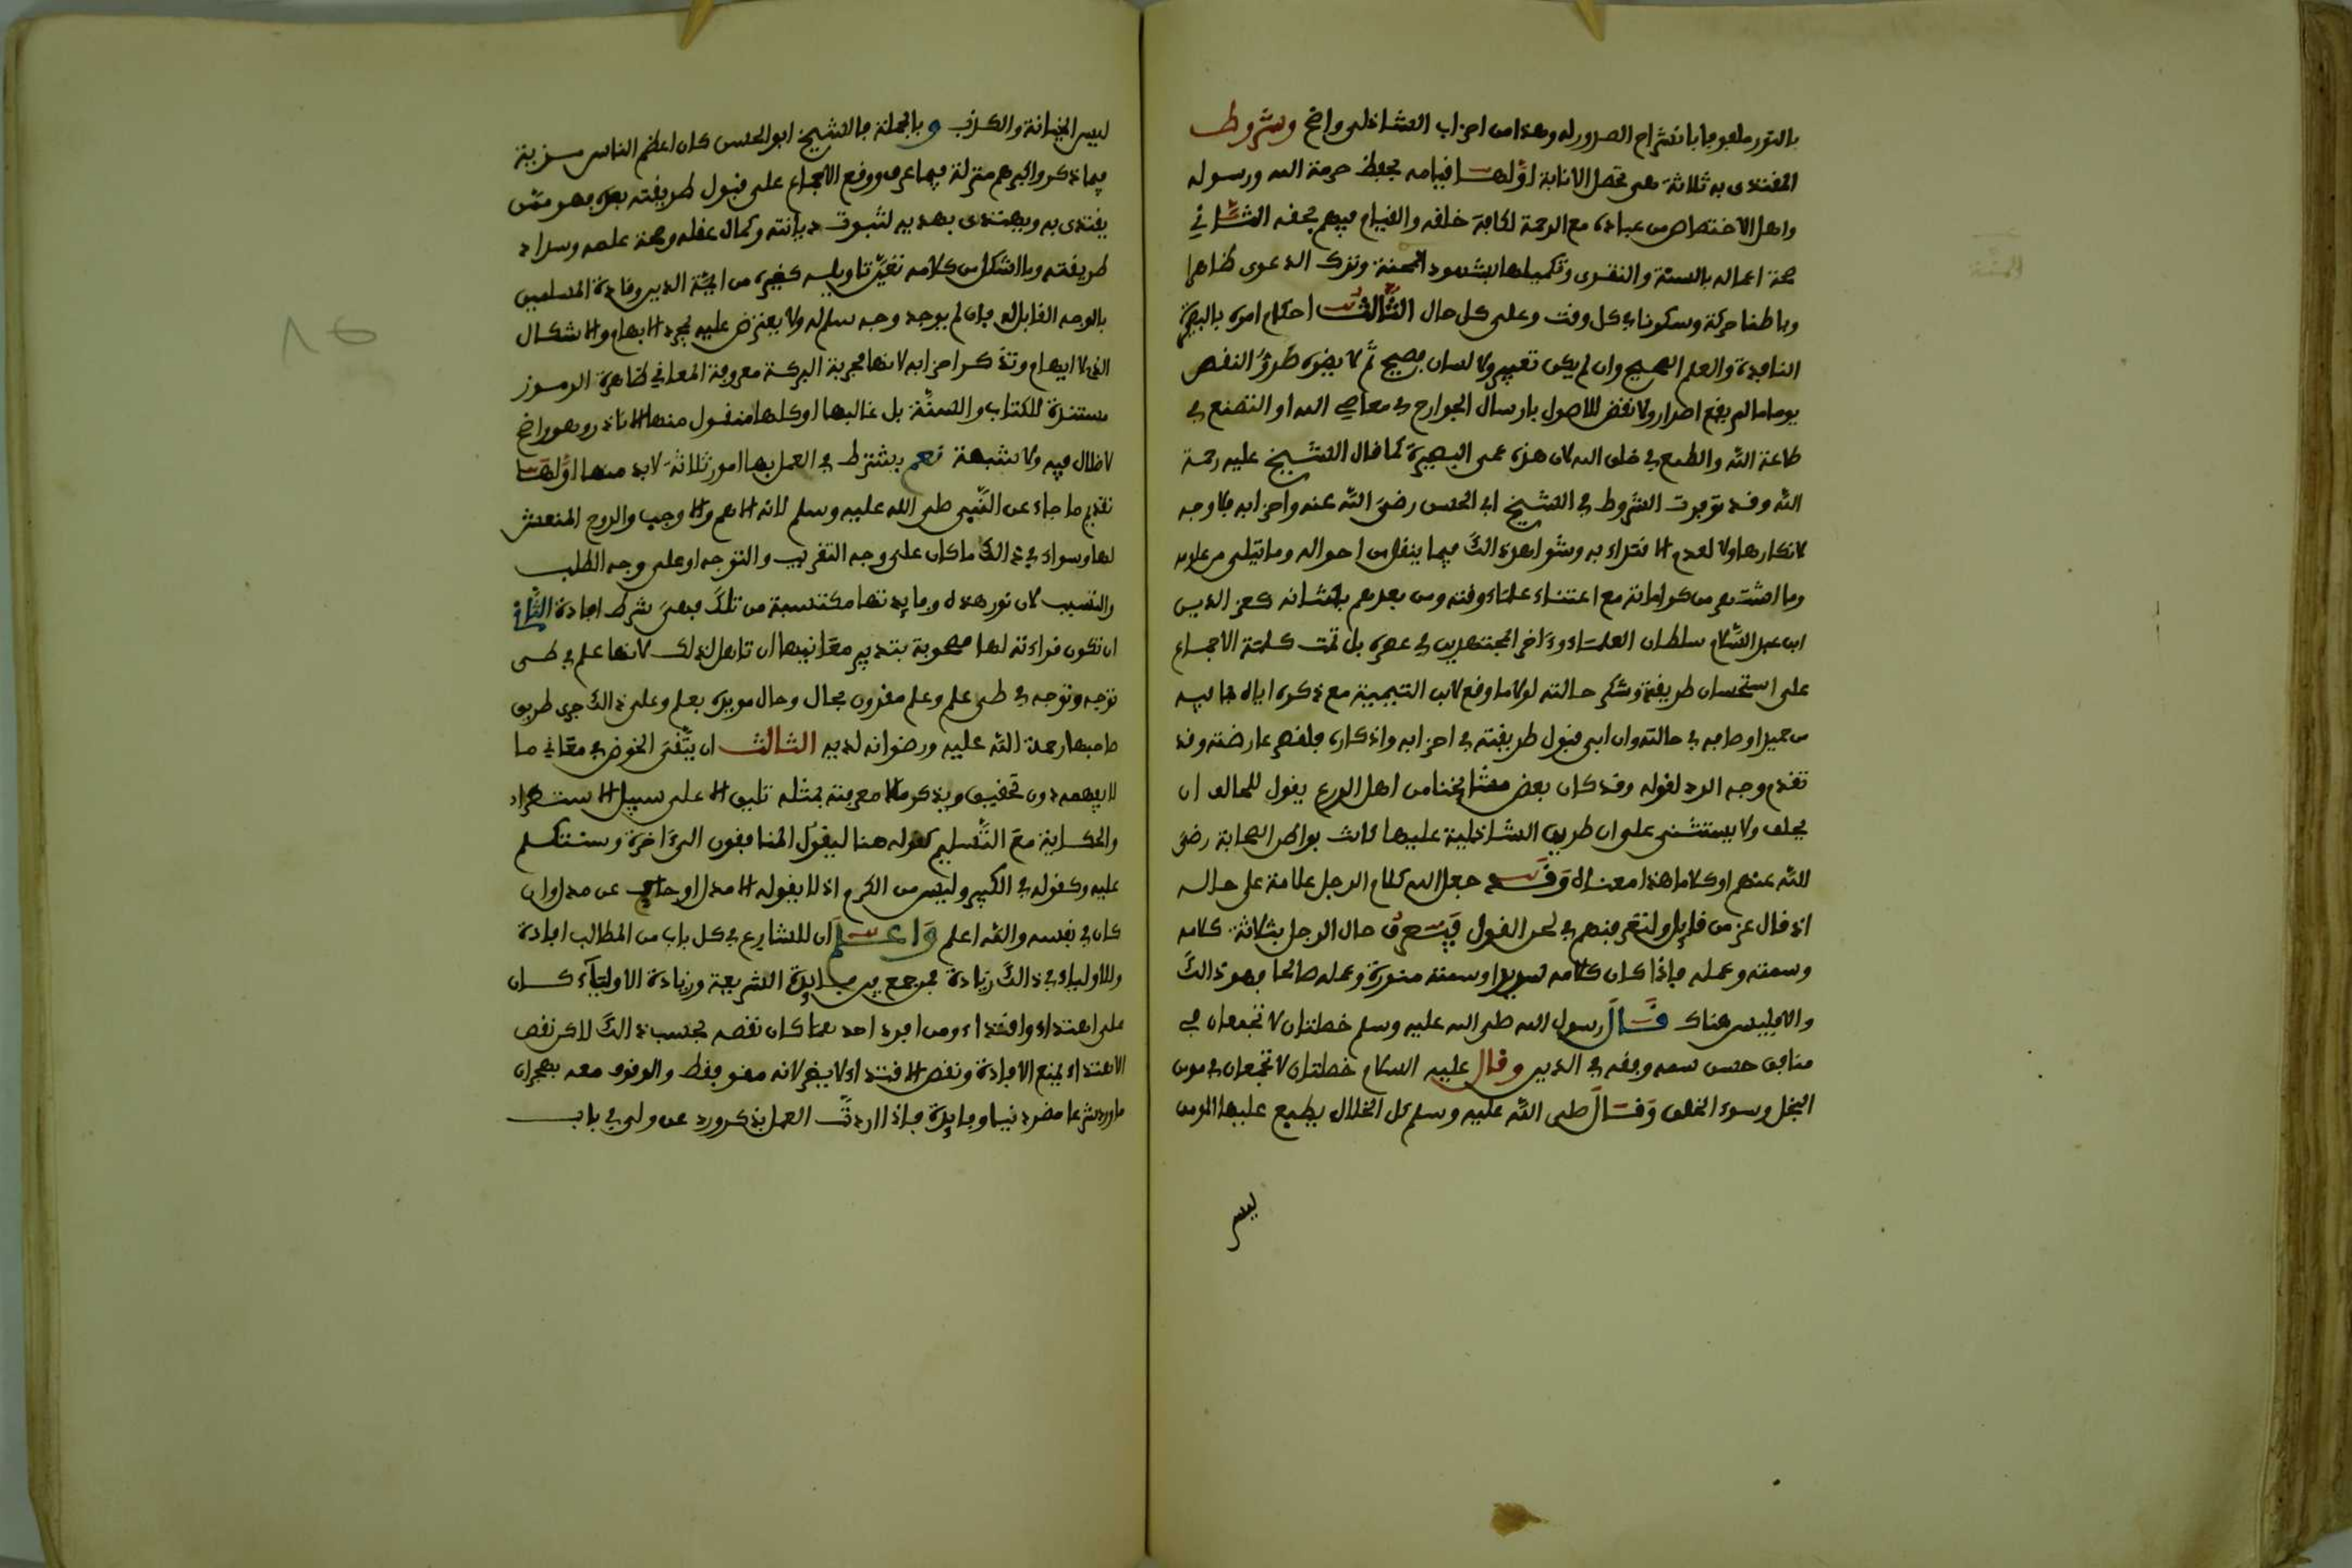 بالنور ملعوجا بانشراح الصدور له وهذا من احزاب الشاذلى واضح وشروط
المقتدى به ثلاثة هي تحصل الانابة اوّلها قيامه بحفظ حرمة الله ورسوله
واهل الاختصاص من عباده مع الرحمة لكافة خلقه والقيام فيهم بحقه الثّاني
صحة اعماله بالسنة والتقوى وتكميلها بشهود المنة وترك الدعوى ظاهرا
وباطنا حركة وسكونا في كل وقت وعلى كل حال الثّالث احكام اموره بالبصيرة
النافذة والعلم الصحيح وان لم يكن تعبير ولا لسان فصيح ثم لا يضره طروّ النقص
يوما ما لم يقع اصرار ولا نقض للاصول بارسال الجوارح في معاصي الله او التصنع في
طاعة الله والطمع في خلق الله لان هذه عمى البصيرة كما قال الشيخ عليه رحمة
الله وقد توفرت الشروط في الشيخ ابي الحسن رضى الله عنه واحزابه فلا وجه
لانكارها ولا لعدم الاقتداء به وشواهد ذالك فيما ينقل من احواله وما يتلى من علومه
وما اشتهر من كراماته مع اعتناء علماء وقته ومن بعدهم بشانه كعز الدين
ابن عبد السّلام سلطان العلماء وءاخر المجتهدين في عصره بل تمت كلمة الاجماع
على استحسان طريقته وشكر حالته لولا ما وقع لابن التيمية مع ذكره اياه بما فيه
من حميد اوصافه في حالته وان ابى قبول طريقته في احزابه واذكاره فلقصر عارضته وقد
تقدم وجه الرد لقوله وقد كان بعض مشايخنا من اهل الورع يقول للحالف ان
يحلف ولا يستثني على ان طريق الشاذلية عليها كانت بواطن الصحابة رضى
الله عنهم او كلاما هذا معناه وقد جعل الله كلام الرجل علامة على حاله
اذ قال عز من قايل ولتعرفنهم في لحن القول فيعرف حال الرجل بثلاثة كلامه
وسمته وعمله فاذا كان كلامه سديدا وسمته منورة وعمله صالحا فهو ذالك
والا فليس هناك قال رسول الله صلى الله عليه وسلم خصلتان لا تجتمعان في
منافق حسن سمت وفقه في الدين وقال عليه السلام خصلتان لا تجتمعان في مومن
البخل وسوء الخلق وقال صلى الله عليه وسلم كل الخلال يطبع عليها المومن
ليس
ليس الخيانة والكذب وبالجملة فالشيخ ابو الحسن كان اعظم الناس مزية
فيما ذكر واكبرهم منزلة فيما عرف ووقع الاجماع على قبول طريقته بعده فهو ممّن
يقتدى به ويهتدى بهديه لثبوت ديانته وكمال عقله وصحة علمه وسداد
طريقته وما اشكل من كلامه تعيّن تاويله كغيره من ايمّة الدين وقادة المسلمين
بالوجه القابل له فان لم يوجد وجه سلم له ولا يعترض عليه لمجرد الابهام والاشكال
الذى لا ايهام وتذكر احزابه لانها مجربة البركة معروفة المعاني ظاهرة الرموز
مستندة للكتاب والسنّة بل غالبها او كلها منقول منها الا نادر وهو واضح
لا ظلال فيه ولا شبهة نعم يشترط في العمل بها امور ثلاثة لابد منها اوّلها
تقديم ما جاء عن النّبي صلى الله عليه وسلم لانه الاهم والاوجب والروح المنعش
لها وسواء في ذالك ما كان على وجه التقريب والتوجه او على وجه الطلب
والتسبب لان نور هذه وفايدتها مكتسبة من تلك فهي شرط افادة الثّاني
ان تكون قراءته لها مصحوبة بتدبر معانيها ان تاهل لذلك لانها علم في طى
توجه وتوجه في طى علم وعلم مقرون بحال وحال مويد بعلم وعلى ذالك جرى طريق
صاحبها رحمة الله عليه ورضوانه لديه الثالث ان يتّقى الخوض في معاني ما
لا يفهمه دون تحقيق ويذكر ما لا معرفته بمثله تليق الا على سبيل الاستطراد
والحكاية مع التّسليم كقوله هنا ليقول المنافقون الى ءاخره وسنتكلم
عليه وكقوله في الكبير وليس من الكرم اذ لا يقوله الا مدل او حاكي عن مدل وان
كان في نفسه والله اعلم واعلم ان للشارع في كل باب من المطالب افادة
وللاولياء في ذالك زيادة فمن جمع بين فايدة الشريعة وزيادة الاولياء كان
على اهتداء واقتداء ومن افرد احدهما كان نقصه بحسب ذالك لاكن نقص
الاهتداء يمنع الافادة ونقص الاقتداء لا يضر لانه مقو فقط والوقوف معه بهجران
ما ورد شرعا مضر دنيا وفايدة فاذا اردت العمل بذكر ورد عن ولى في باب